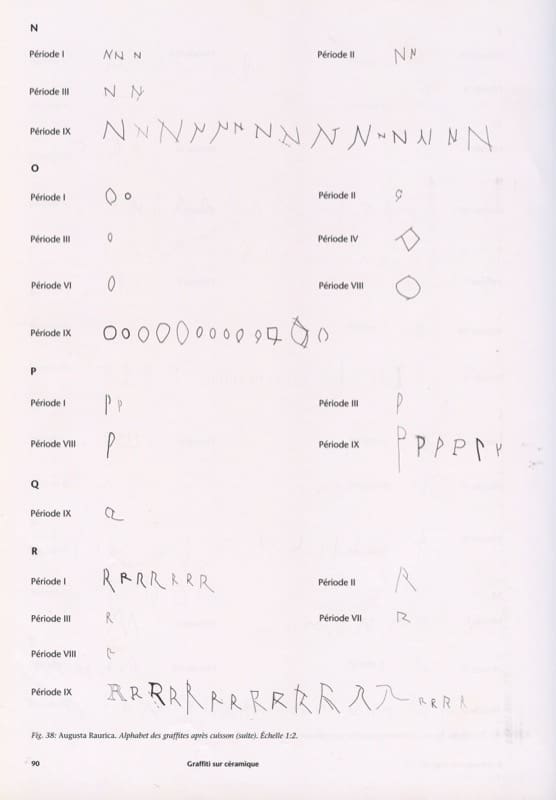 N
Période I N N N Période II N N
Période III N N
Période IX N N N N N N N N N N N N N N N
O
Période I O O Période II O
Période III O Période IV O
Période VI O Période VIII O
Période IX O O O O O O O O O O O O O
P
Période I P P Période III P
Période VIII P Période IX P P P P P P
Q
Période IX Q
R
Période I R R R R R R R Période II R
Période III R Période VII R
Période VIII R
Période IX R R R R R R R R R R R R R R R R R
Fig. 38: Augusta Raurica. Alphabet des graffites après cuisson (suite). Échelle 1:2.
90 Graffiti sur céramique